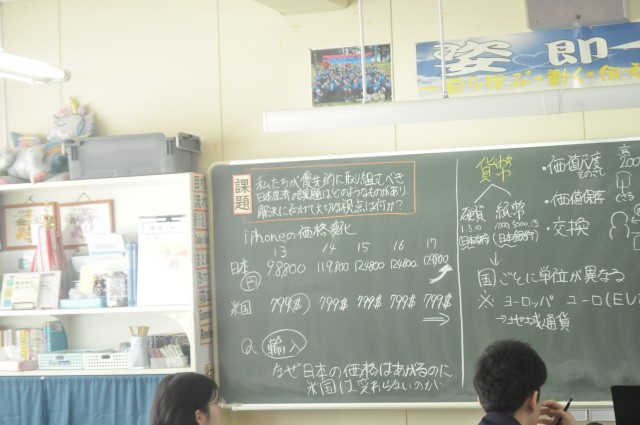 姿即
課題
私たちが優先的に取り組むべき
日本経済の課題はどのようなものがあり、
解決に向けて大切な視点は何か?
iPhoneの価格変化
13 14 15 16 17
日本 98,800 119,800 124,800 124,800 129,800
円
米国 799$ 799$ 799$ 799$ 799$
Q 輸入
なぜ日本の価格はあがるのに
米国は変わらないのか
貨幣
硬貨 紙幣
(日本銀行)
・価値尺度
ものさし
・価値保存
・交換
国ごとに単位が異なる
※ ヨーロッパ ユーロ(EU
→地域通貨